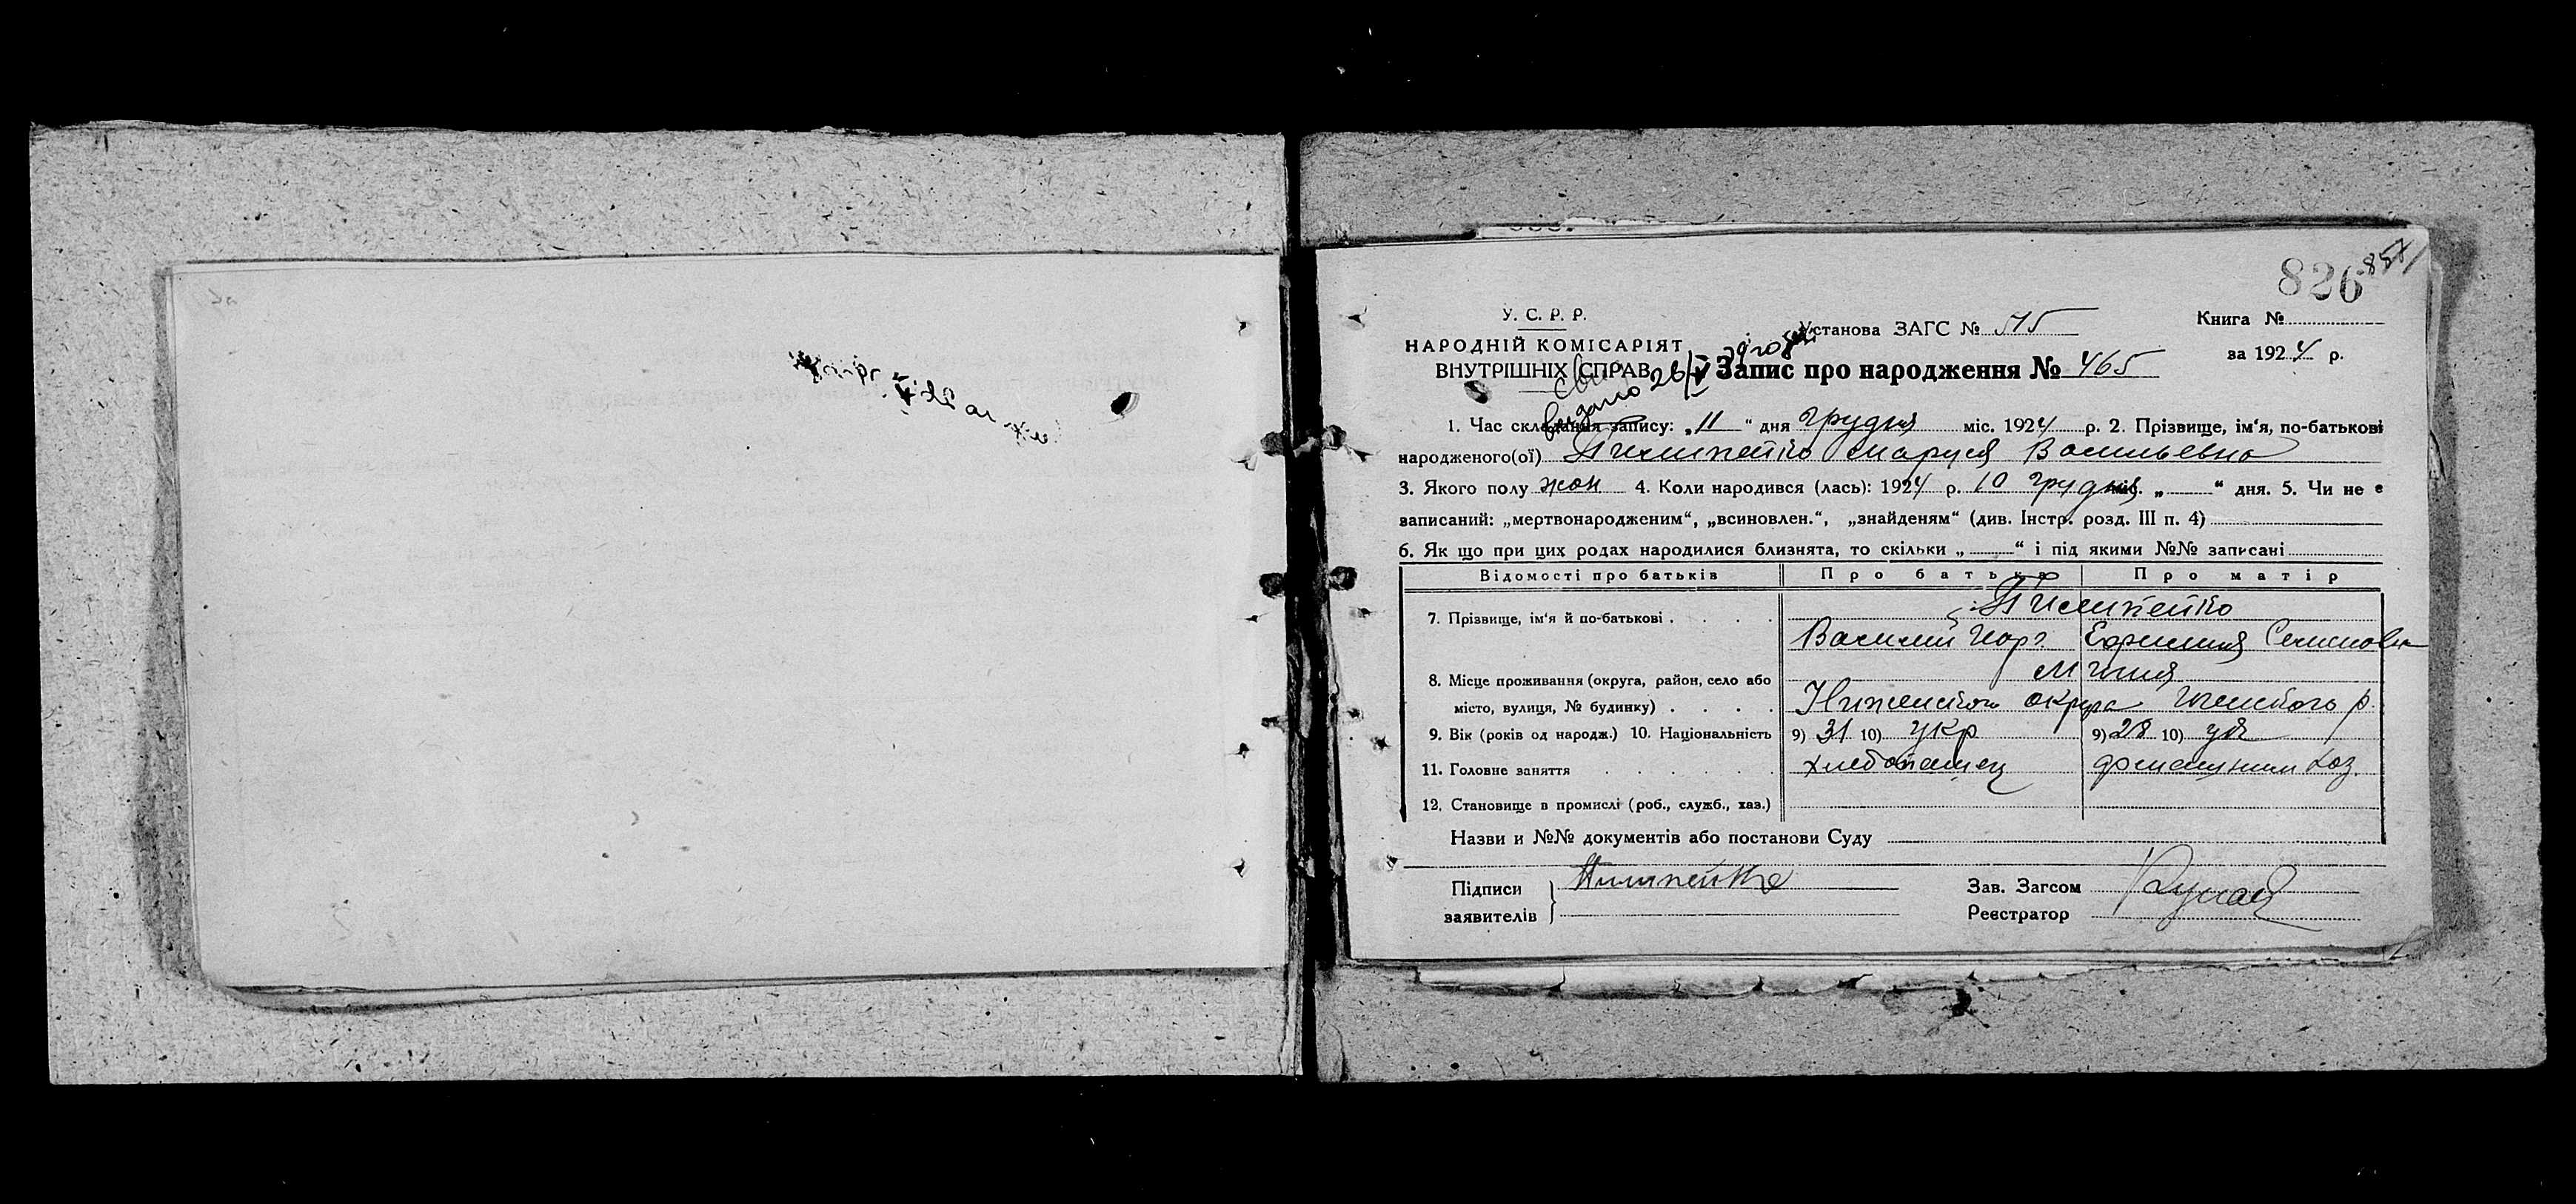 826 857
У. С. Р. Р.
НАРОДНІЙ КОМІСАРІЯТ
ВНУТРІШНІХ СПРАВ
видано 26/V
Установа ЗАГС № 515
Запис про народження № 465
Книга №
за 1924 р.
1. Час складання запису: „11“ дня грудня міс. 1924 р. 2. Прізвище, ім‘я, по-батькові
народженого(ої) Пилипенко Маруся Васильевна
3. Якого полу жен 4. Коли народився (лась): 1924 р. 10 грудня міс. „ “ дня. 5. Чи не є
записаний: „мертвонародженим“, „всиновлен.“, „знайденям“ (див. Інстр. розд. III п. 4)
6. Як що при цих родах народилися близнята, то скільки „ “ і під якими №№ записані
Відомості про батьків Про батька Про матір
7. Прізвище, ім‘я й по-батькові . . . . Пилипенко
Василий Ефросиния Семеновн
8. Місце проживання (округа, район, село або
місто, вулиця, № будинку) . . . . Ніженского округа р.
9. Вік (років од народж.) 10. Національність 9) 31 10) укр 9) 28 10) укр
11. Головне заняття . . . . . . хлебопашец домашним хоз.
12. Становище в промислі (роб., служб., хаз.)
Назви и №№ документів або постанови Суду
Підписи
заявителів Пилипенко
Зав. Загсом
Реєстратор